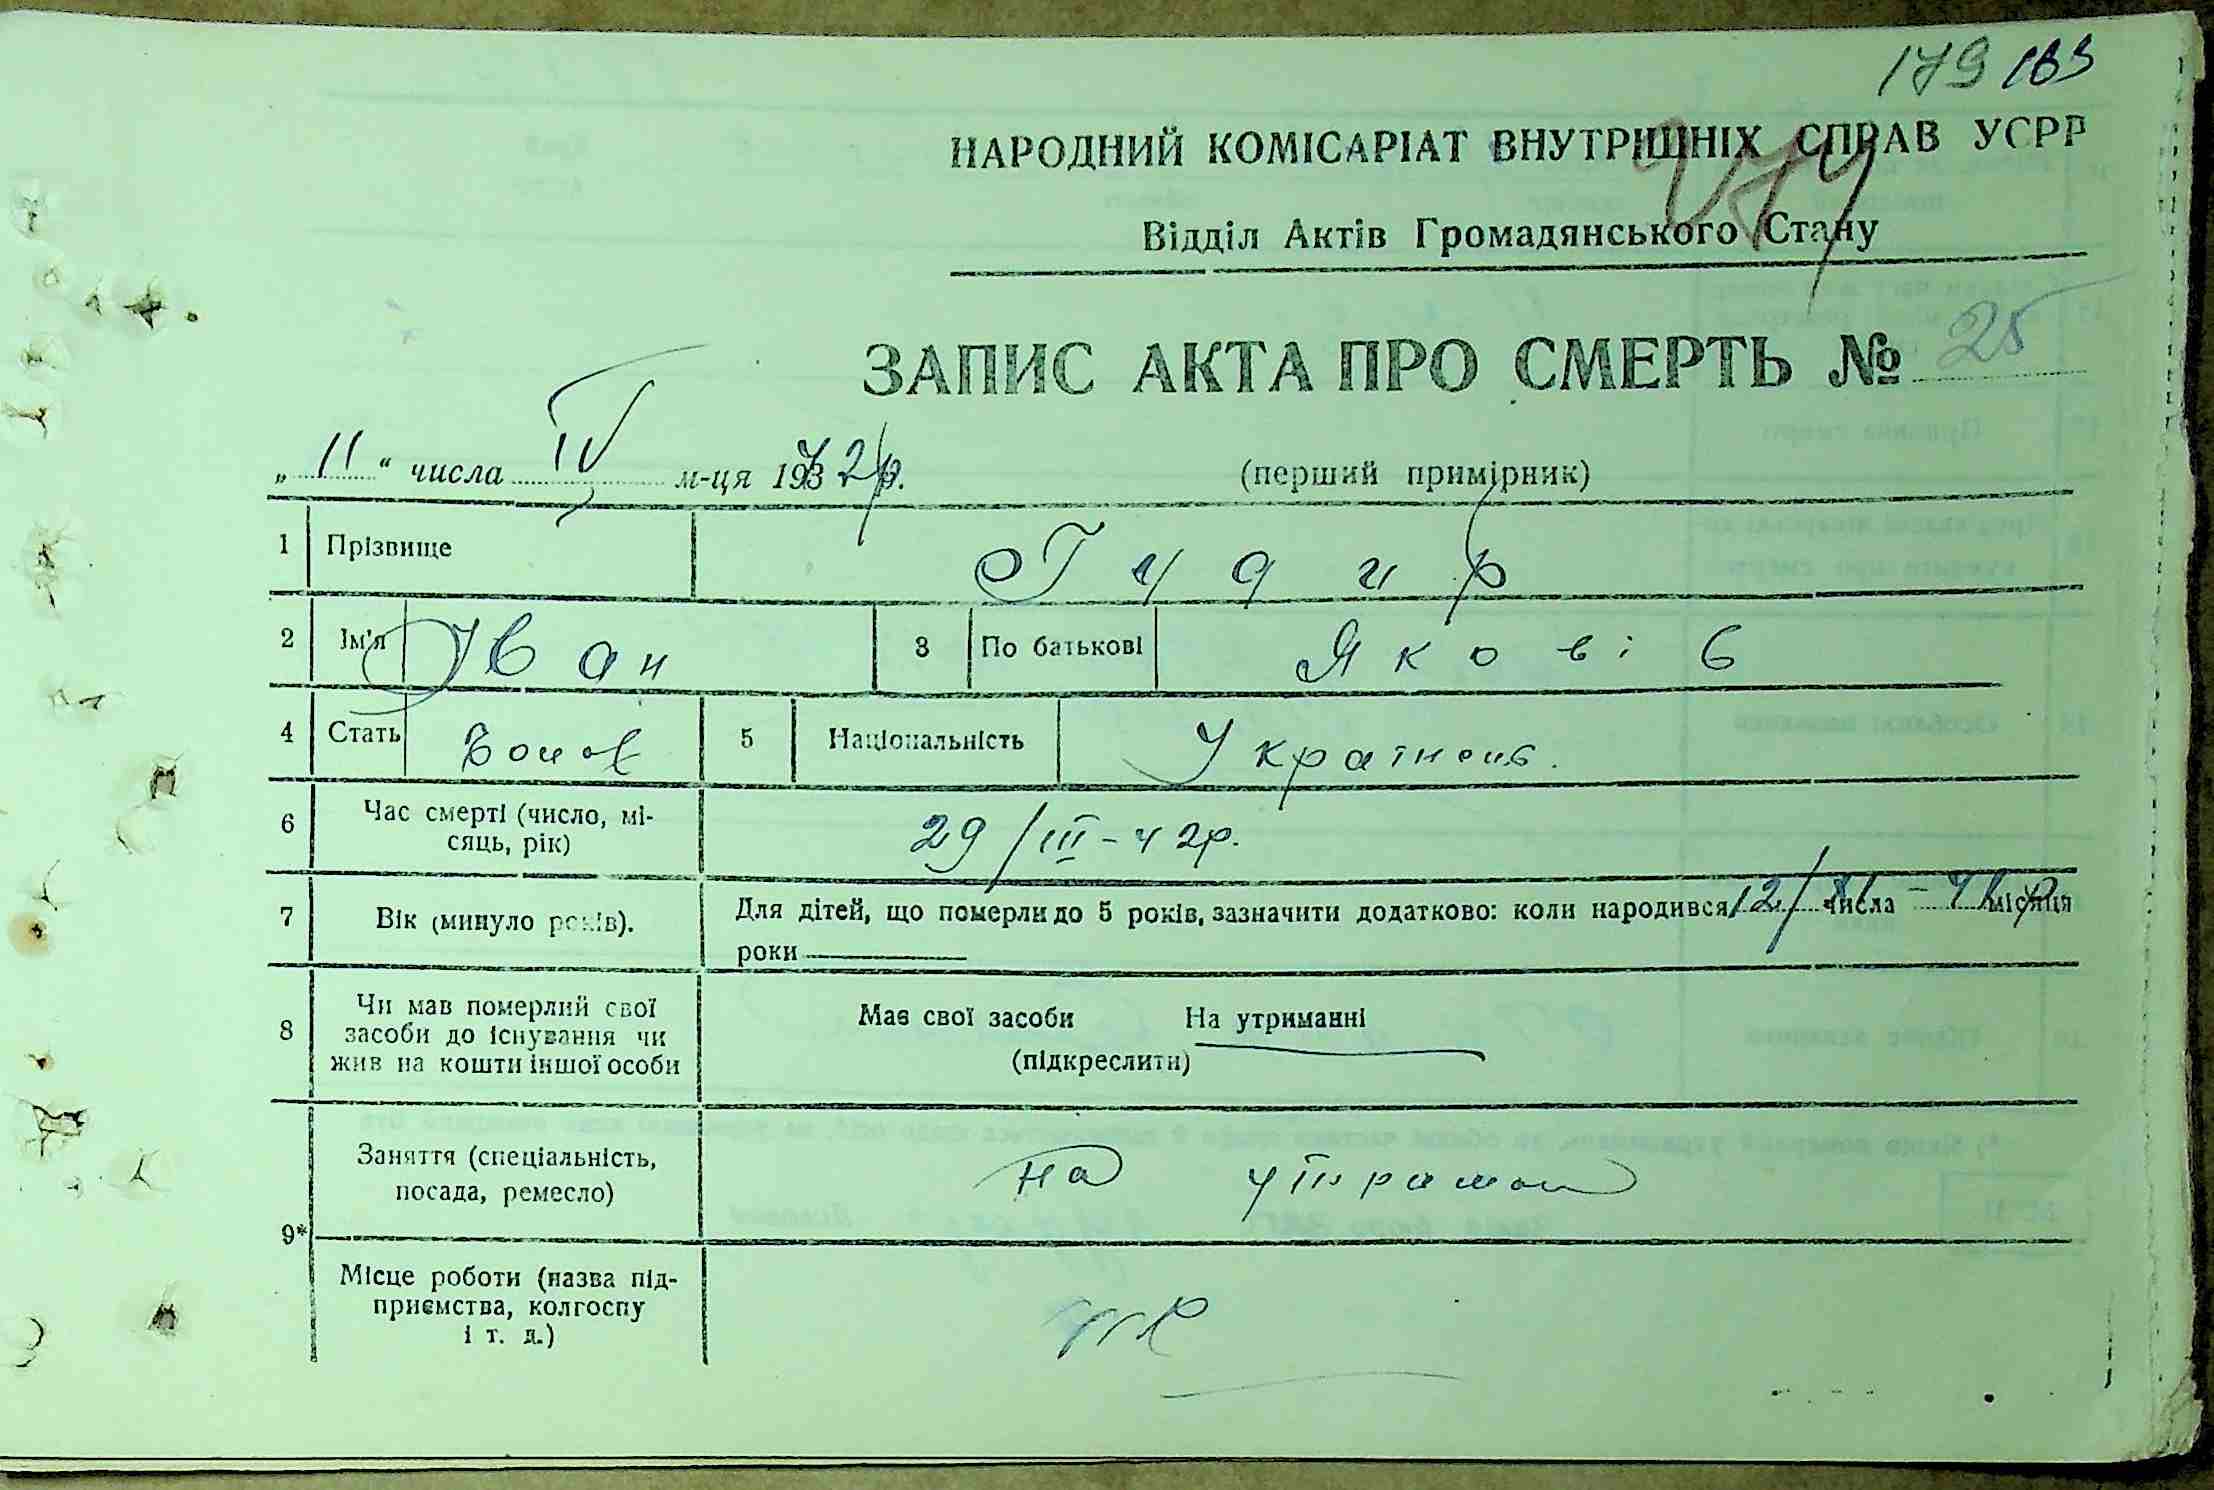 179 183
НАРОДНИЙ КОМІСАРІАТ ВНУТРІШНІХ СПРАВ УСРР
Відділ Актів Громадянського Стану
ЗАПИС АКТА ПРО СМЕРТЬ № 25
„ 11 “ числа IV м-ця 1942р.
(перший примірник)
1 Прізвище Гидир
2 Ім'я Іван 3 По батькові Якові в
4 Стать Чолов 5 Національність Українець.
6 Час смерті (число, місяць, рік) 29/III-42р.
7 Вік (минуло років). Для дітей, що померли до 5 років, зазначити додатково: коли народився 12/ числа місяця
роки
8 Чи мав померлий свої засоби до існування чи жив на кошти іншої особи
Має свої засоби На утриманні
(підкреслити)
9* Заняття (спеціальність, посада, ремесло) на утриман
Місце роботи (назва підприємства, колгоспу і т. д.)